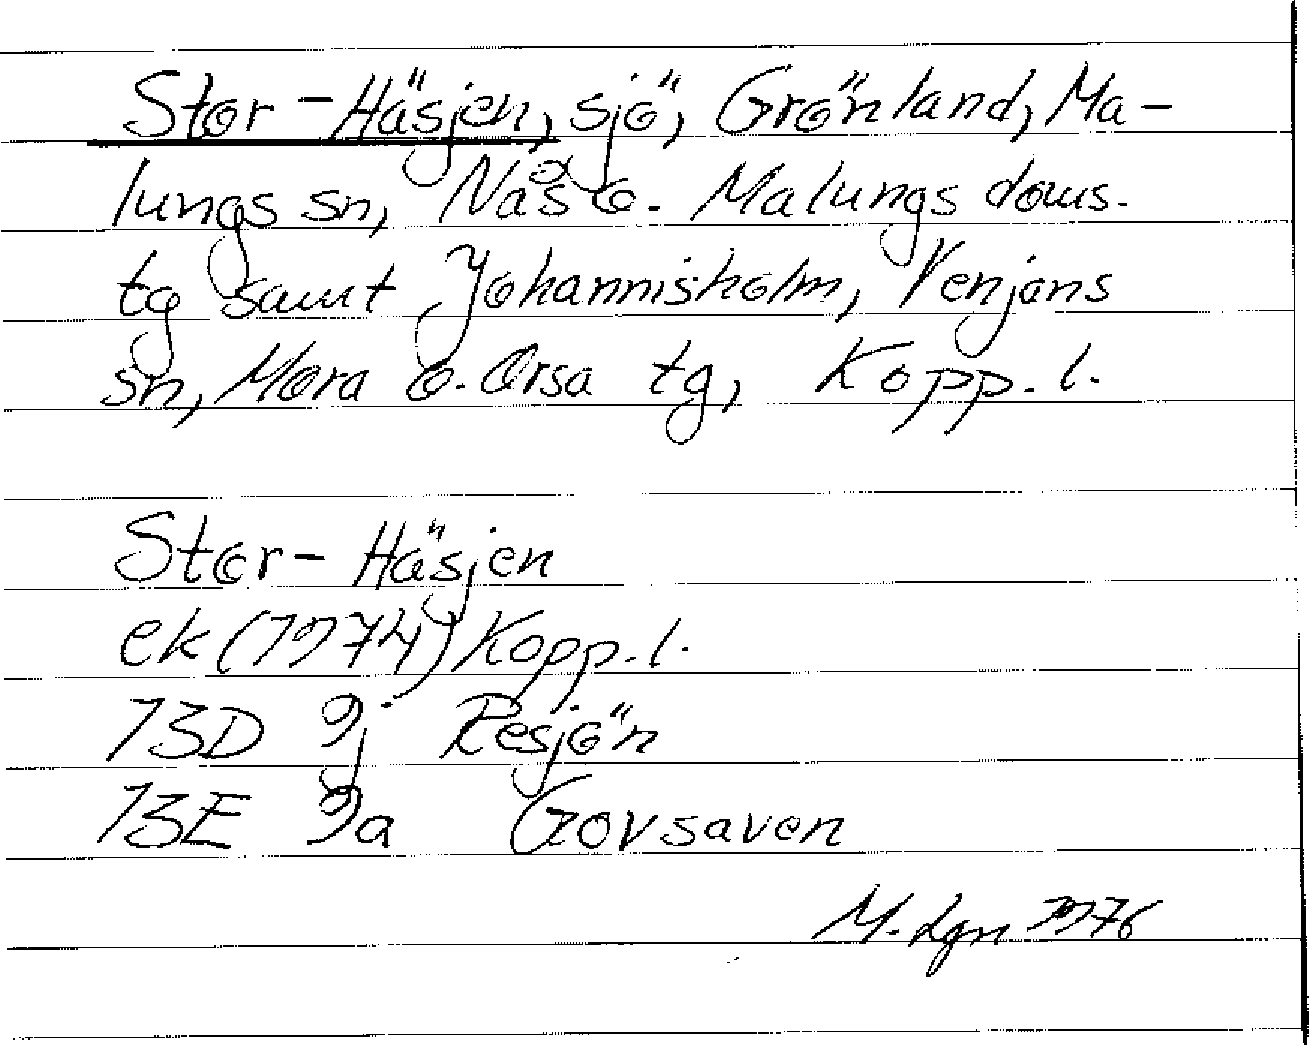 Stor-Häsjen, sjö, Grönland, Ma-
lungs sn, Nås o. Malungs doms.
tg samt Johannisholm, Venjans
sn, Mora o. Orsa tg, Kopp. l.
Stor-Häsjen
ek (1974) Kopp. l.
13D 9j Resjön
13E 9a Govsaven
M. Lgn 1976